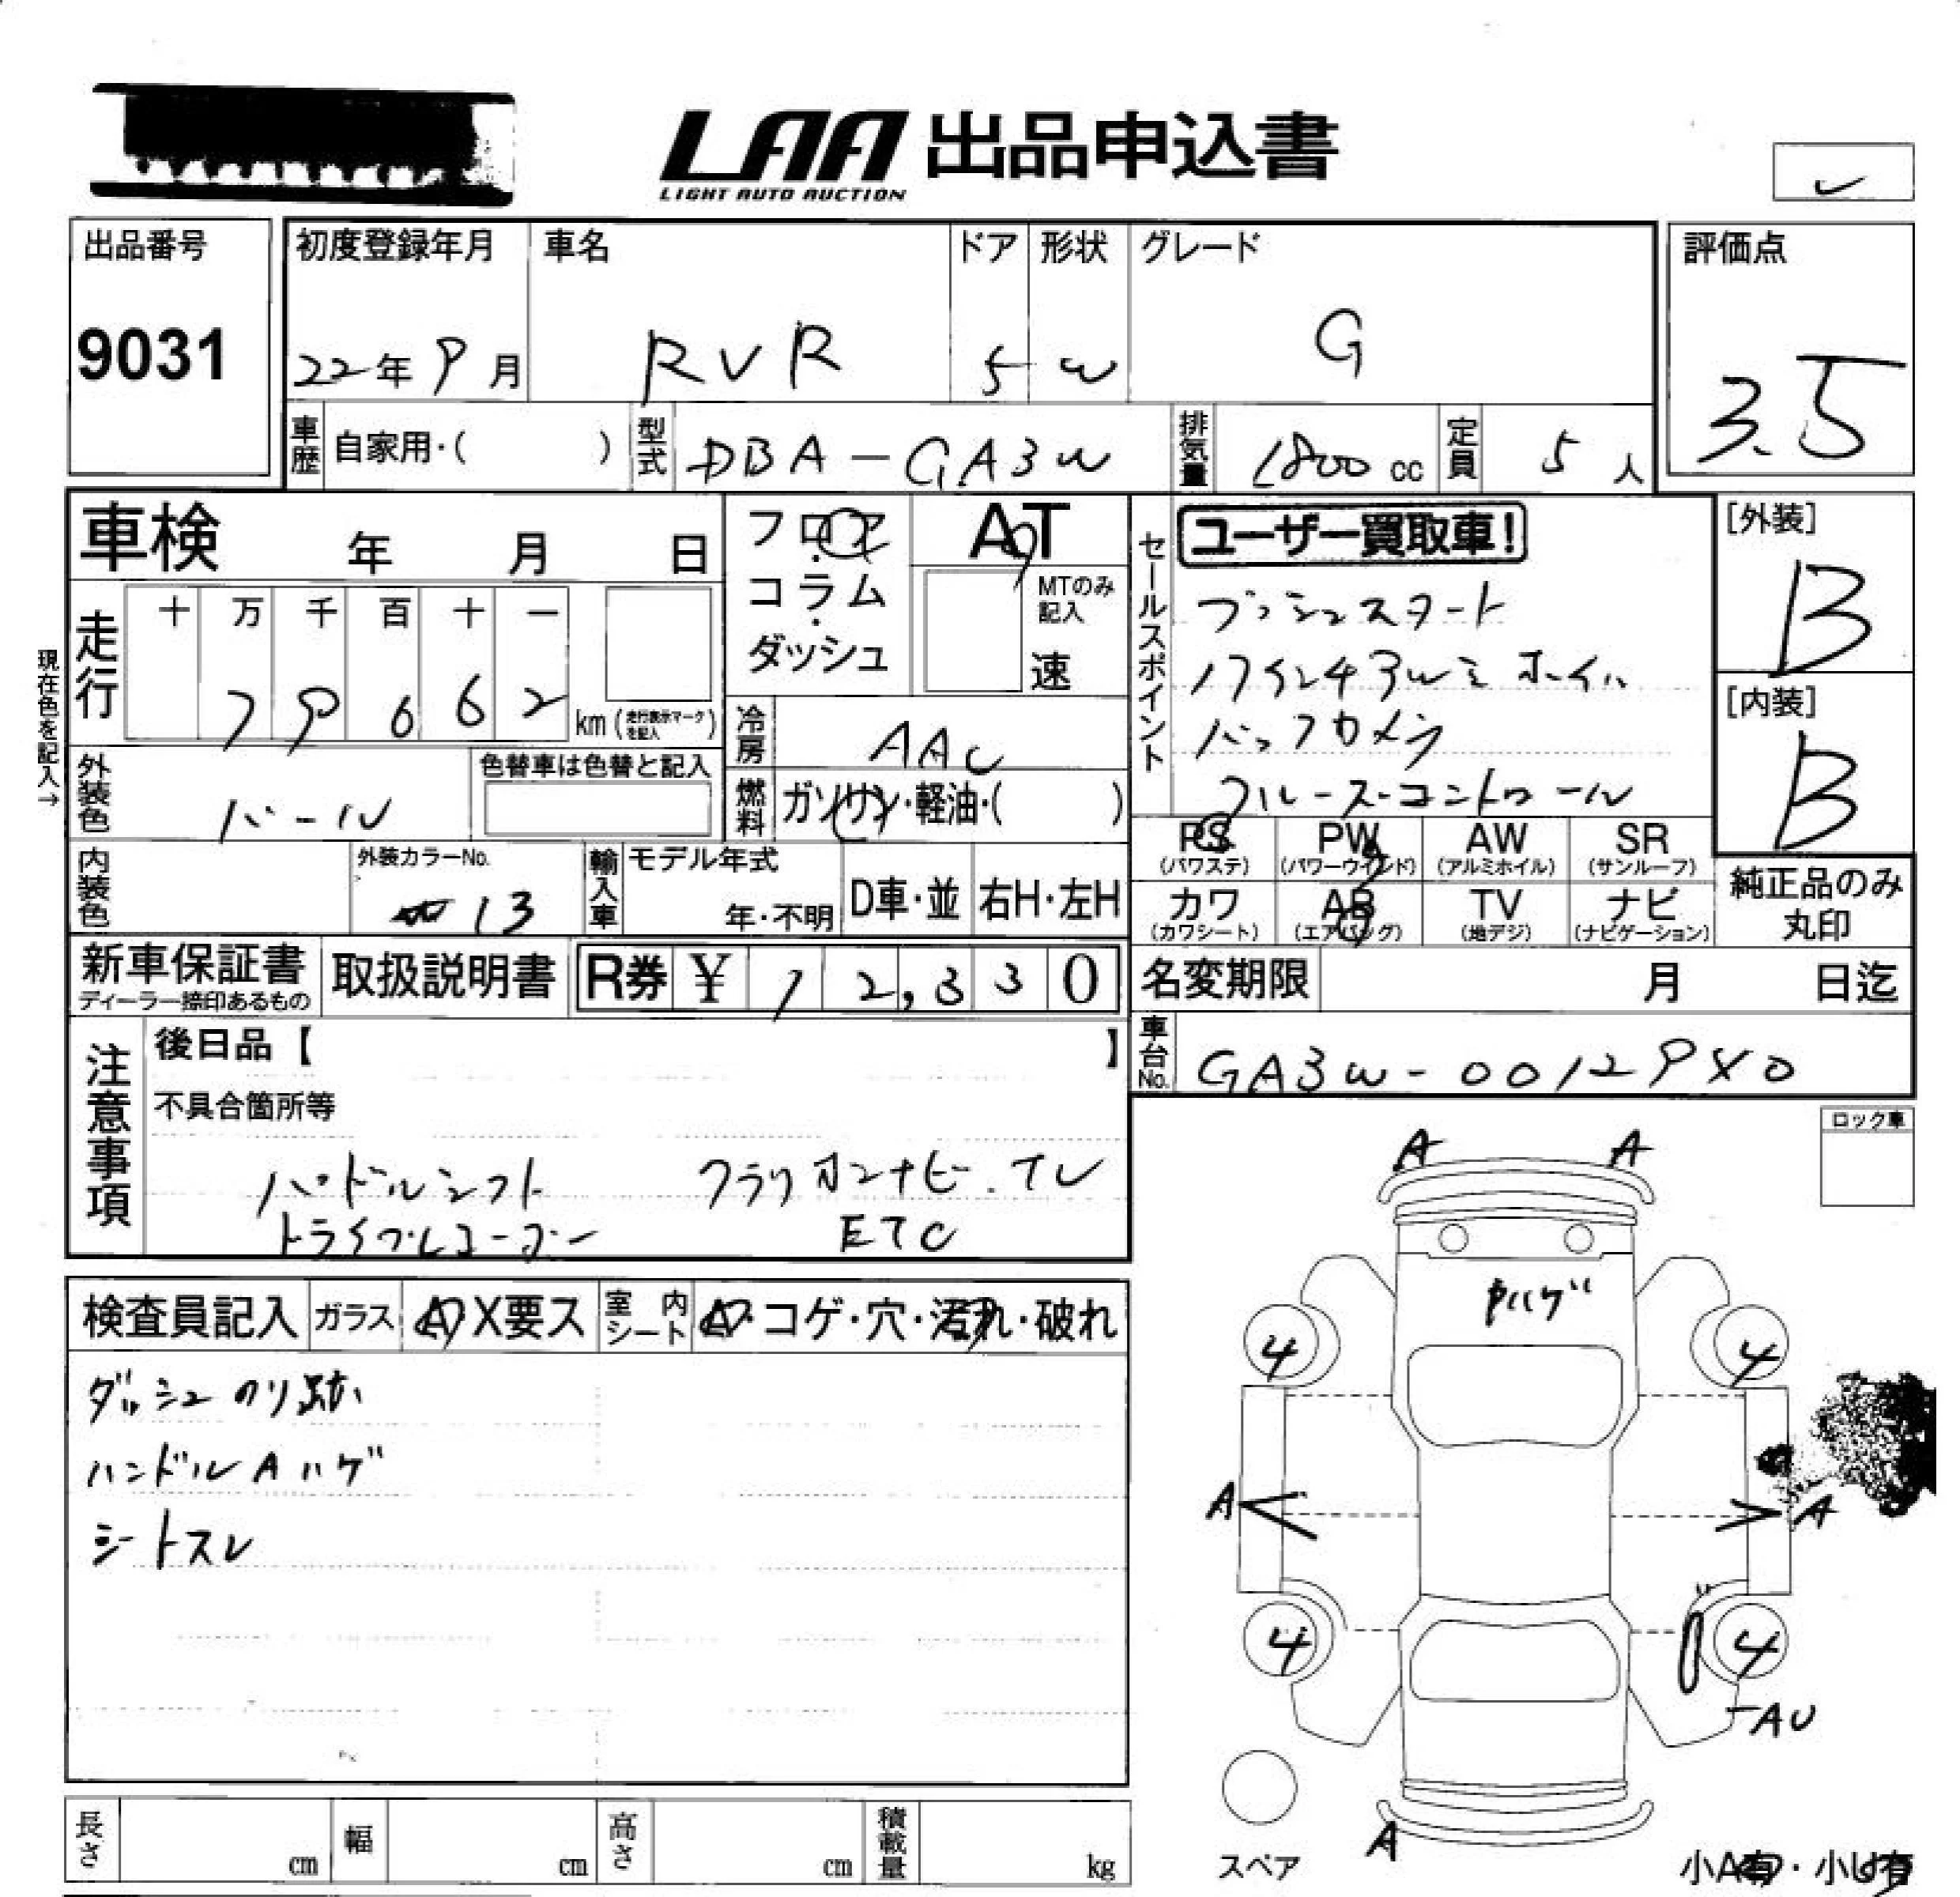 LAA 出品申込書
LIGHT AUTO AUCTION
出品番号
9031
初度登録年月
22年9月
車名
RVR
ドア
5
形状
W
グレード
G
評価点
3.5
車歴
自家用・( )
型式
DBA-GA3W
排気量
1800 cc
定員
5 人
車検 年 月 日
フロア・コラム・ダッシュ
AT
MTのみ記入
速
現在色を記入→
走行
十 万 千 百 十 一
7 9 6 6 2
km (走行表示マークを記入)
冷房
AAC
外装色
パール
色替車は色替と記入
燃料
ガソリン・軽油・( )
内装色
外装カラーNo.
13
輸入車
モデル年式
年・不明
D車・並
右H・左H
セールスポイント
ユーザー買取車!
プッシュスタート
17インチアルミホイール
バックカメラ
クルーズコントロール
[外装]
B
[内装]
B
PS (パワステ)
PW (パワーウインド)
AW (アルミホイル)
SR (サンルーフ)
カワ (カワシート)
AB (エアバッグ)
TV (地デジ)
ナビ (ナビゲーション)
純正品のみ丸印
新車保証書
ディーラー捺印あるもの
取扱説明書
R券 ¥ 12,330
名変期限 月 日迄
車台No.
GA3W-00129X0
注意事項
後日品【 】
不具合箇所等
パドルシフト クラリオンナビ.TV
ドライブレコーダー ETC
ロック車
検査員記入
ガラス
A・X要ス
室内シート
A・コゲ・穴・汚れ・破れ
ダッシュのり跡
ハンドルAハゲ
シートスレ
A A
ハゲ
4 4
A A
4 4
AU
A
スペア
小A有・小U有
長さ cm
幅 cm
高さ cm
積載量 kg